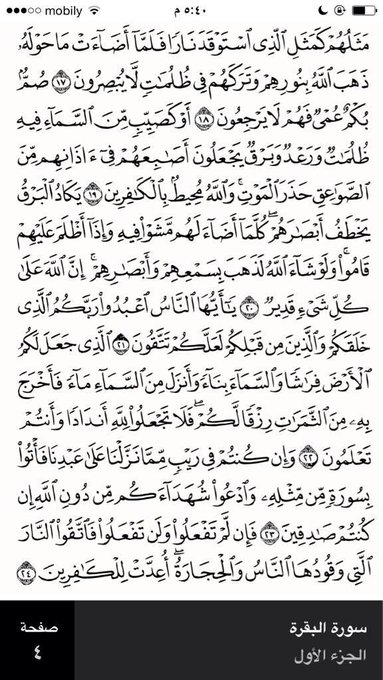 mobily ٥:٤٠ م
مَثَلُهُمْ كَمَثَلِ ٱلَّذِى ٱسْتَوْقَدَ نَارًا فَلَمَّآ أَضَآءَتْ مَا حَوْلَهُۥ
ذَهَبَ ٱللَّهُ بِنُورِهِمْ وَتَرَكَهُمْ فِى ظُلُمَٰتٍ لَّا يُبْصِرُونَ ١٧ صُمٌّۢ
بُكْمٌ عُمْىٌ فَهُمْ لَا يَرْجِعُونَ ١٨ أَوْ كَصَيِّبٍ مِّنَ ٱلسَّمَآءِ فِيهِ
ظُلُمَٰتٌ وَرَعْدٌ وَبَرْقٌ يَجْعَلُونَ أَصَٰبِعَهُمْ فِىٓ ءَاذَانِهِم مِّنَ
ٱلصَّوَٰعِقِ حَذَرَ ٱلْمَوْتِ ۚ وَٱللَّهُ مُحِيطٌۢ بِٱلْكَٰفِرِينَ ١٩ يَكَادُ ٱلْبَرْقُ
يَخْطَفُ أَبْصَٰرَهُمْ ۖ كُلَّمَآ أَضَآءَ لَهُم مَّشَوْا۟ فِيهِ وَإِذَآ أَظْلَمَ عَلَيْهِمْ
قَامُوا۟ ۚ وَلَوْ شَآءَ ٱللَّهُ لَذَهَبَ بِسَمْعِهِمْ وَأَبْصَٰرِهِمْ ۚ إِنَّ ٱللَّهَ عَلَىٰ
كُلِّ شَىْءٍ قَدِيرٌ ٢٠ يَٰٓأَيُّهَا ٱلنَّاسُ ٱعْبُدُوا۟ رَبَّكُمُ ٱلَّذِى
خَلَقَكُمْ وَٱلَّذِينَ مِن قَبْلِكُمْ لَعَلَّكُمْ تَتَّقُونَ ٢١ ٱلَّذِى جَعَلَ لَكُمُ
ٱلْأَرْضَ فِرَٰشًا وَٱلسَّمَآءَ بِنَآءً وَأَنزَلَ مِنَ ٱلسَّمَآءِ مَآءً فَأَخْرَجَ
بِهِۦ مِنَ ٱلثَّمَرَٰتِ رِزْقًا لَّكُمْ ۖ فَلَا تَجْعَلُوا۟ لِلَّهِ أَندَادًا وَأَنتُمْ
تَعْلَمُونَ ٢٢ وَإِن كُنتُمْ فِى رَيْبٍ مِّمَّا نَزَّلْنَا عَلَىٰ عَبْدِنَا فَأْتُوا۟
بِسُورَةٍ مِّن مِّثْلِهِۦ وَٱدْعُوا۟ شُهَدَآءَكُم مِّن دُونِ ٱللَّهِ إِن
كُنتُمْ صَٰدِقِينَ ٢٣ فَإِن لَّمْ تَفْعَلُوا۟ وَلَن تَفْعَلُوا۟ فَٱتَّقُوا۟ ٱلنَّارَ
ٱلَّتِى وَقُودُهَا ٱلنَّاسُ وَٱلْحِجَارَةُ ۖ أُعِدَّتْ لِلْكَٰفِرِينَ ٢٤
سورة البقرة
الجزء الأول
صفحة
٤